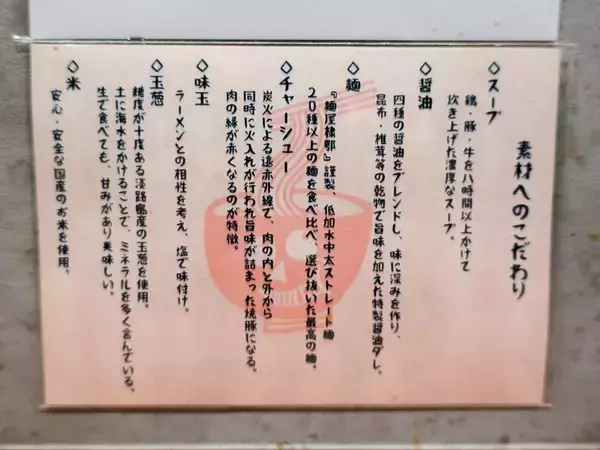 素材へのこだわり
◇スープ
鶏・豚・牛を八時間以上かけて
炊き上げた濃厚なスープ。
◇醤油
四種の醤油をブレンドし、味に深みを作り、
昆布・椎茸等の乾物で旨味を加えた特製醤油ダレ。
◇麺
『麺屋棣鄂』謹製、低加水中太ストレート麺
20種以上の麺を食べ比べ、選び抜いた最高の麺。
◇チャーシュー
炭火による遠赤外線で、肉の内と外から
同時に火入れが行われ旨味が詰まった焼豚になる。
肉の縁が赤くなるのが特徴。
◇味玉
ラーメンとの相性を考え、塩で味付け。
◇玉葱
糖度が十度ある淡路島産の玉葱を使用。
土に海水をかけることで、ミネラルを多く含んでいる。
生で食べても、甘みがあり美味しい。
◇米
安心・安全な国産のお米を使用。